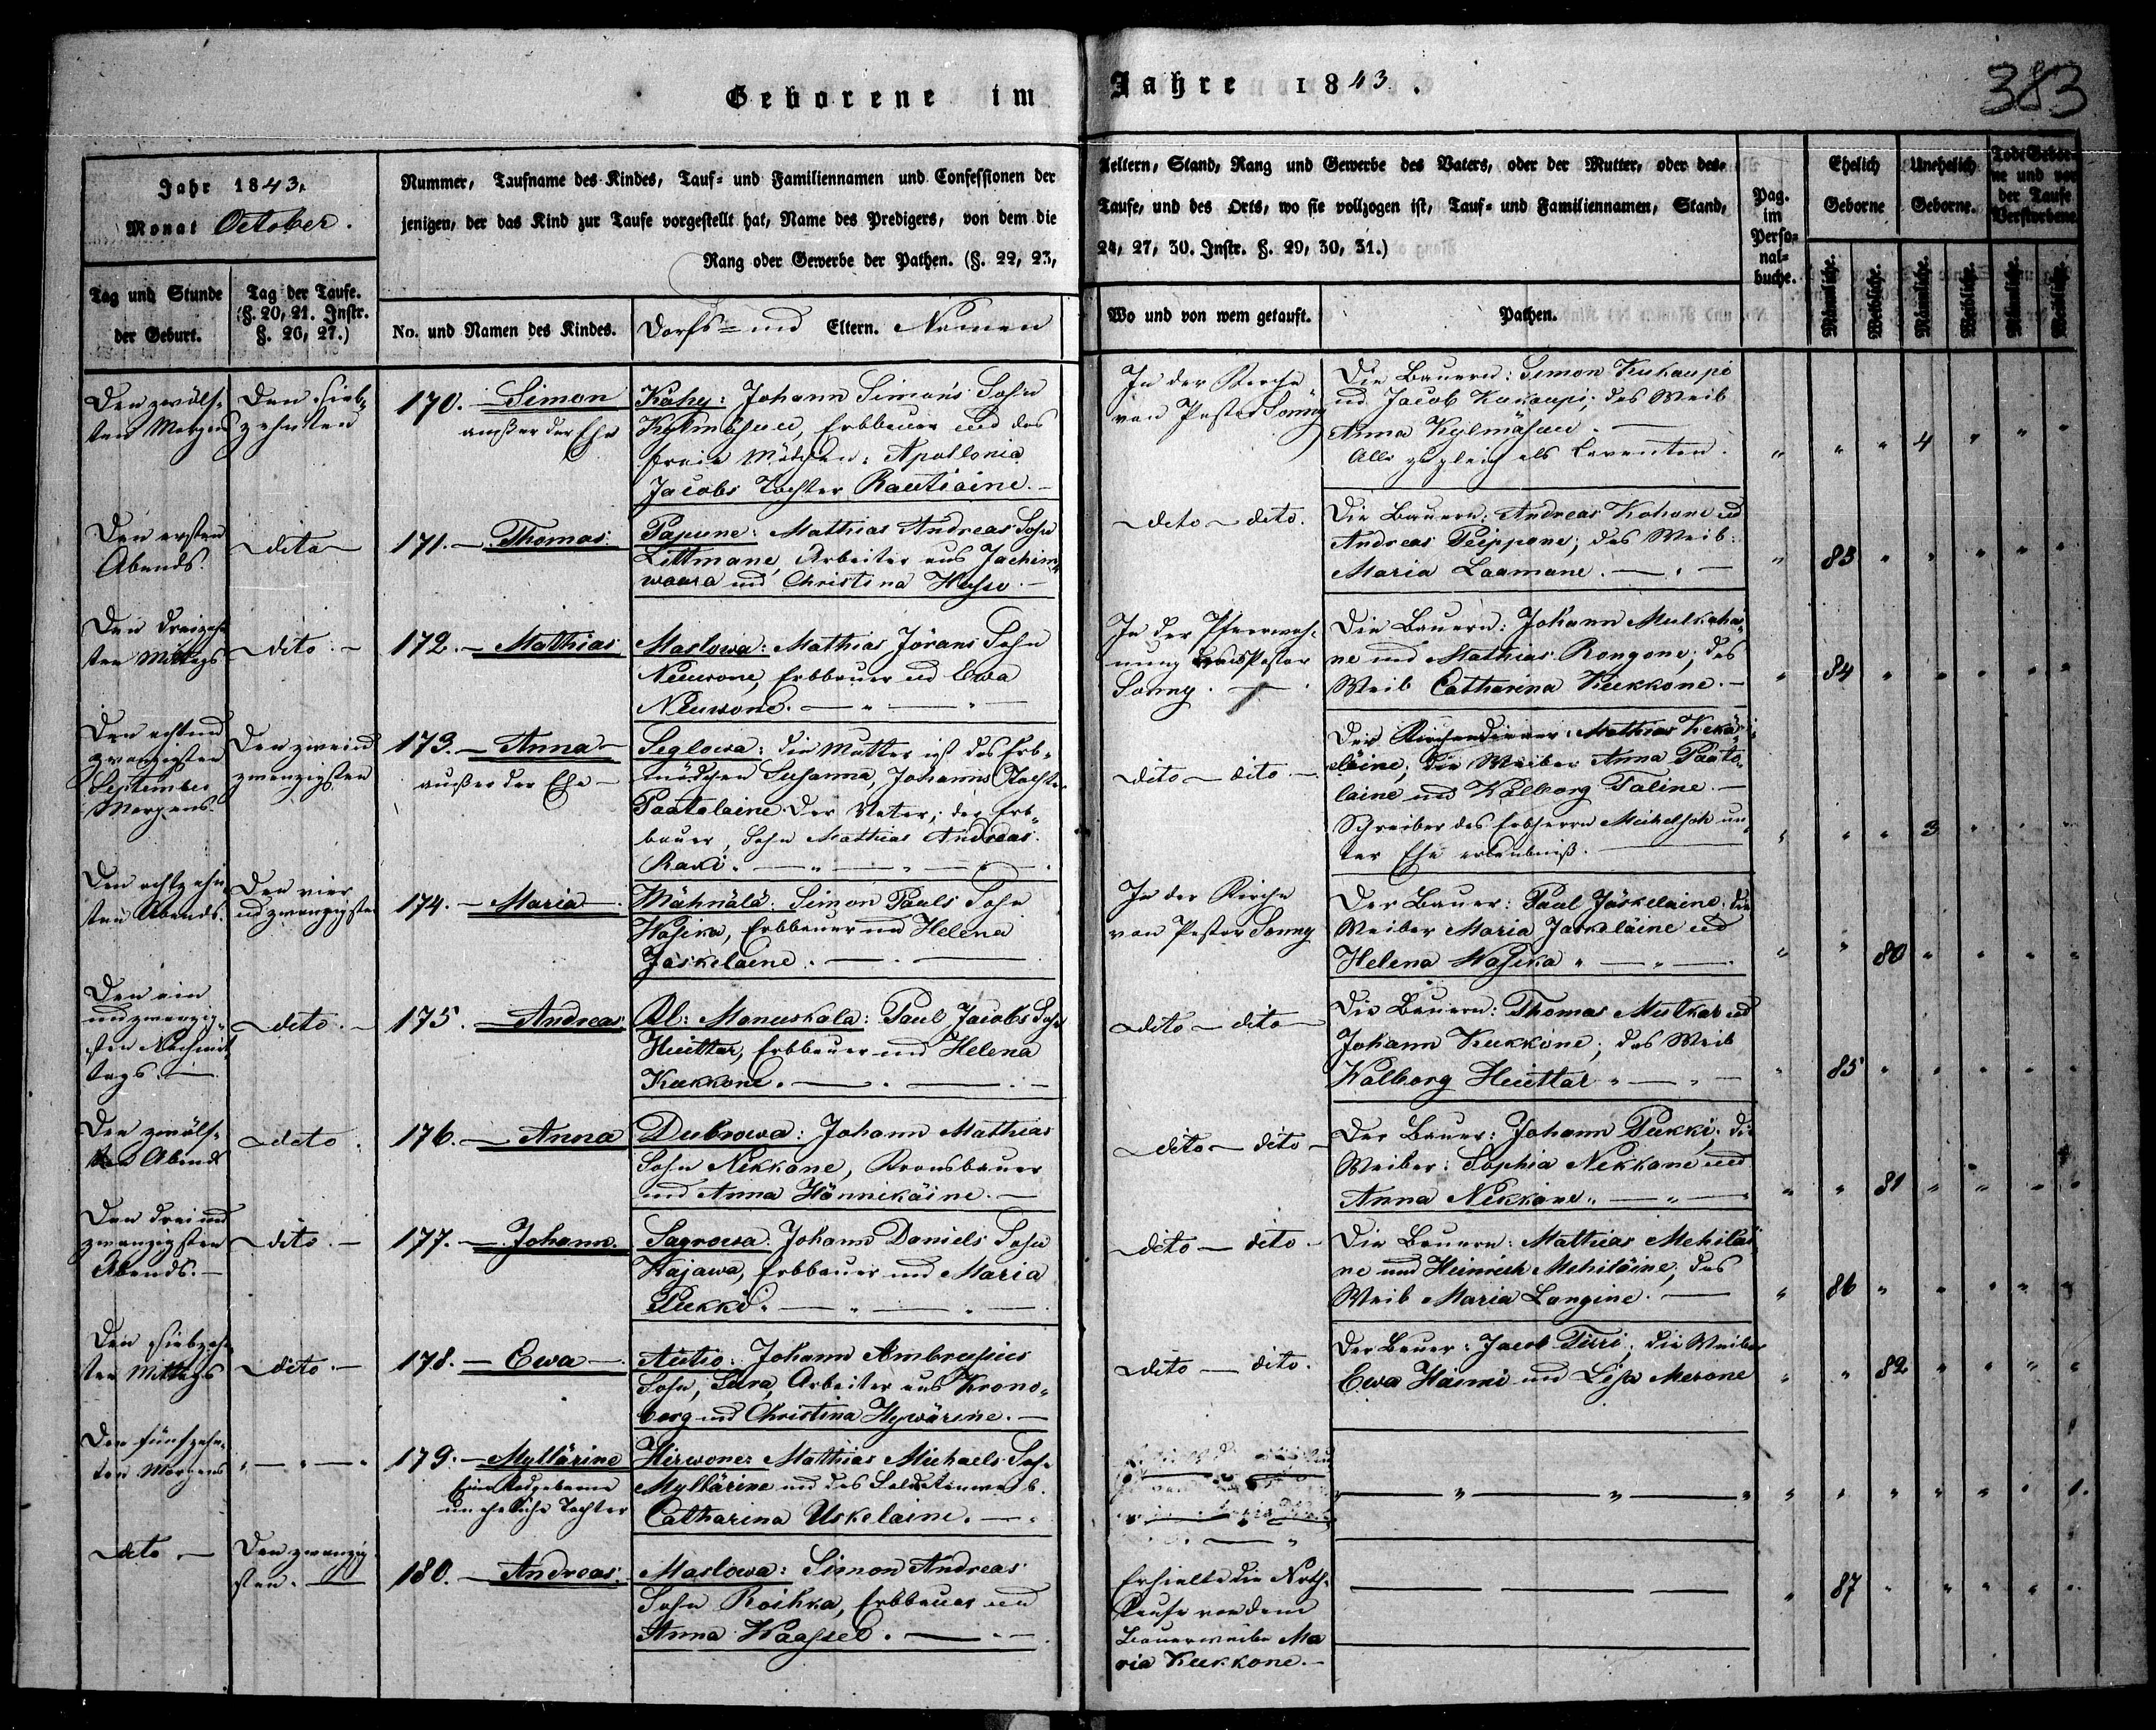 Geborene im Jahre 1843.
383
Jahr 1843.
Monat October.
Tag und Stunde
der Geburt.
Tag der Taufe.
(§. 20, 21. Instr.
§. 26, 27.)
Nummer, Taufname des Kindes, Tauf- und Familiennamen und Confessionen der
jenigen, der das Kind zur Taufe vorgestellt hat, Name des Predigers, von dem die
Rang oder Gewerbe der Pathen. (§. 22, 23,
No. und Namen des Kindes.
Dorfs- und Eltern. Namen
Aeltern, Stand, Rang und Gewerbe des Vaters, oder der Mutter, oder des-
Taufe, und des Orts, wo sie vollzogen ist, Tauf- und Familiennamen, Stand,
24, 27, 30. Instr. §. 29, 30, 31.)
Wo und von wem getauft.
Pathen.
Pag.
im
Perso-
nal-
buche.
Ehelich
Geborne
Unehelich
Geborne.
Todt Gebor-
ne und vor
der Taufe
Verstorbene
Männliche.
Weibliche.
Männliche.
Weibliche.
Männliche.
Weibliche.
Den zwölf-
ten Morgens
Den sieb-
zehnten
170. Simon
außer der Ehe
Kahy: Johann Simons Sohn
Kylmäsuu, Erbbauer und das
freie Mädchen: Apollonia
Jacobs Tochter Rautiaine.
In der Kirche
von Pastor Sonny
Die Bauern: Simon Kukaupi
und Jacob Kukaupi; das Weib
Anna Kylmäsuu.
Alle zugleich als Leventen.
4
Den ersten
Abends.
dito
171. Thomas.
Papune: Mathias Andreas Sohn
Littmane, Arbeiter aus Jachim-
waara und Christina Hesse.
dito dito.
Die Bauern: Andreas Kohone ud
Andreas Peippone; das Weib:
Maria Laamane.
83
Den dreizehn-
ten Mittags
dito.
172. Mathias
Maslowa: Mathias Jörans Sohn
Neuwone, Erbbauer ud Ewa
Neuwone.
In der Pfarrwoh-
nung Pastor
Sonny.
Die Bauern: Johann Mulkaha-
ne und Mathias Rongone; das
Weib Catharina Kukkone.
84
Den acht und
zwanzigsten
September
Morgens
Den zwei ud
zwanzigsten
173. Anna
außer der Ehe
Seglowa: die Mutter ist das Erb-
mädchen Susanna, Johanns Tochter
Paatelaine. Der Vater, der Erb-
bauer, Sohn Mathias Andreas
Raxi.
dito dito
Der Kirchendiener: Mathias Kekä-
läine; die Weiber Anna Paato-
laine und Walborg Taline.
Schreiber des Erbherrn Michelson un-
ter Ehe erlaubniß.
3
Den achtzehn-
ten Abends.
Den vier
ud zwanzigsten
174. Maria
Mähnälä: Simon Pauls Sohn
Wasika, Erbbauer und Helena
Jäskelaine.
In der Kirche
von Pastor Sonny
Der Bauer: Paul Jäskelaine; die
Weiber Maria Jaskeläine ud
Helena Wasika
80
Den ein
und zwanzig-
sten Nachmit
tags.
dito.
175. Andreas
Al: Manuskala: Paul Jacobs Sohn
Huittar, Erbbauer und Helena
Kukkone.
dito dito
Die Bauern: Thomas Mutkar ud
Johann Kukkone; das Weib
Walborg Huittar
85
Den zwölf-
ten Abends
dito.
176. Anna
Dubrowa: Johann Mathias
Sohn Nikkane, Kronsbauer
und Anna Hännikäine.
dito dito
Der Bauer: Johann Pukki; die
Weiber: Sophia Nikkane und
Anna Nikkane.
81
Den drei und
zwanzigsten
Abends.
dito.
177. Johann.
Sagrowa: Johann Daniels Sohn
Kajawa, Erbbauer und Maria
Pukki.
dito dito
Die Bauern: Mathias Mehiläi-
ne und Heinrich Mehiläine, das
Weib Maria Langine.
86
Den siebzehn-
ten Mittags
dito.
178. Ewa
Autio: Johann Ambrusius
Sohn, Sura, Arbeiter aus Krono-
borg und Christina Hywärine.
dito dito.
Der Bauer: Jacob Tiiri; die Weiber
Ewa Hämi und Lisa Merone
82
Den fünfzehn-
ten Morgens
179. Myllärine
Eine todgeborne
uneheliche Tochter
Hirwone: Mathias Michaels Sohn
Myllärine und das Soldatenweib
Catharina Uskelaine.
1.
dito
Den zwanzig
sten.
180. Andreas.
Maslowa: Simon Andreas
Sohn Roihka, Erbbauer und
Anna Waassel.
Erhielte die Noth-
taufe von dem
Bauernweibe Ma
ria Kukkone.
87